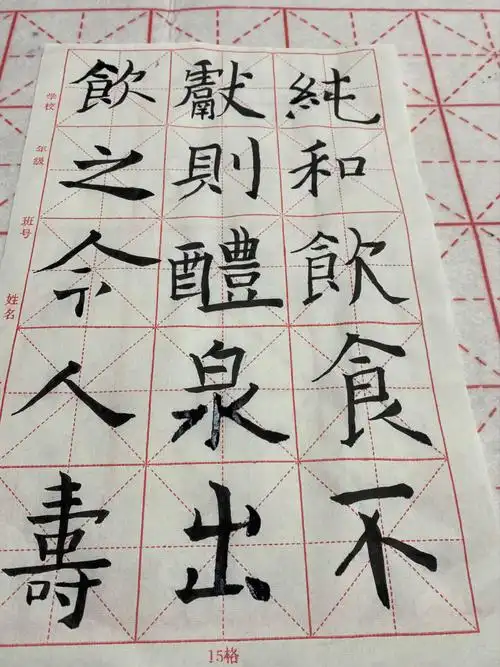 純和飲食不
獻則醴泉出
飲之令人壽
学校
年级
班号
姓名
15格